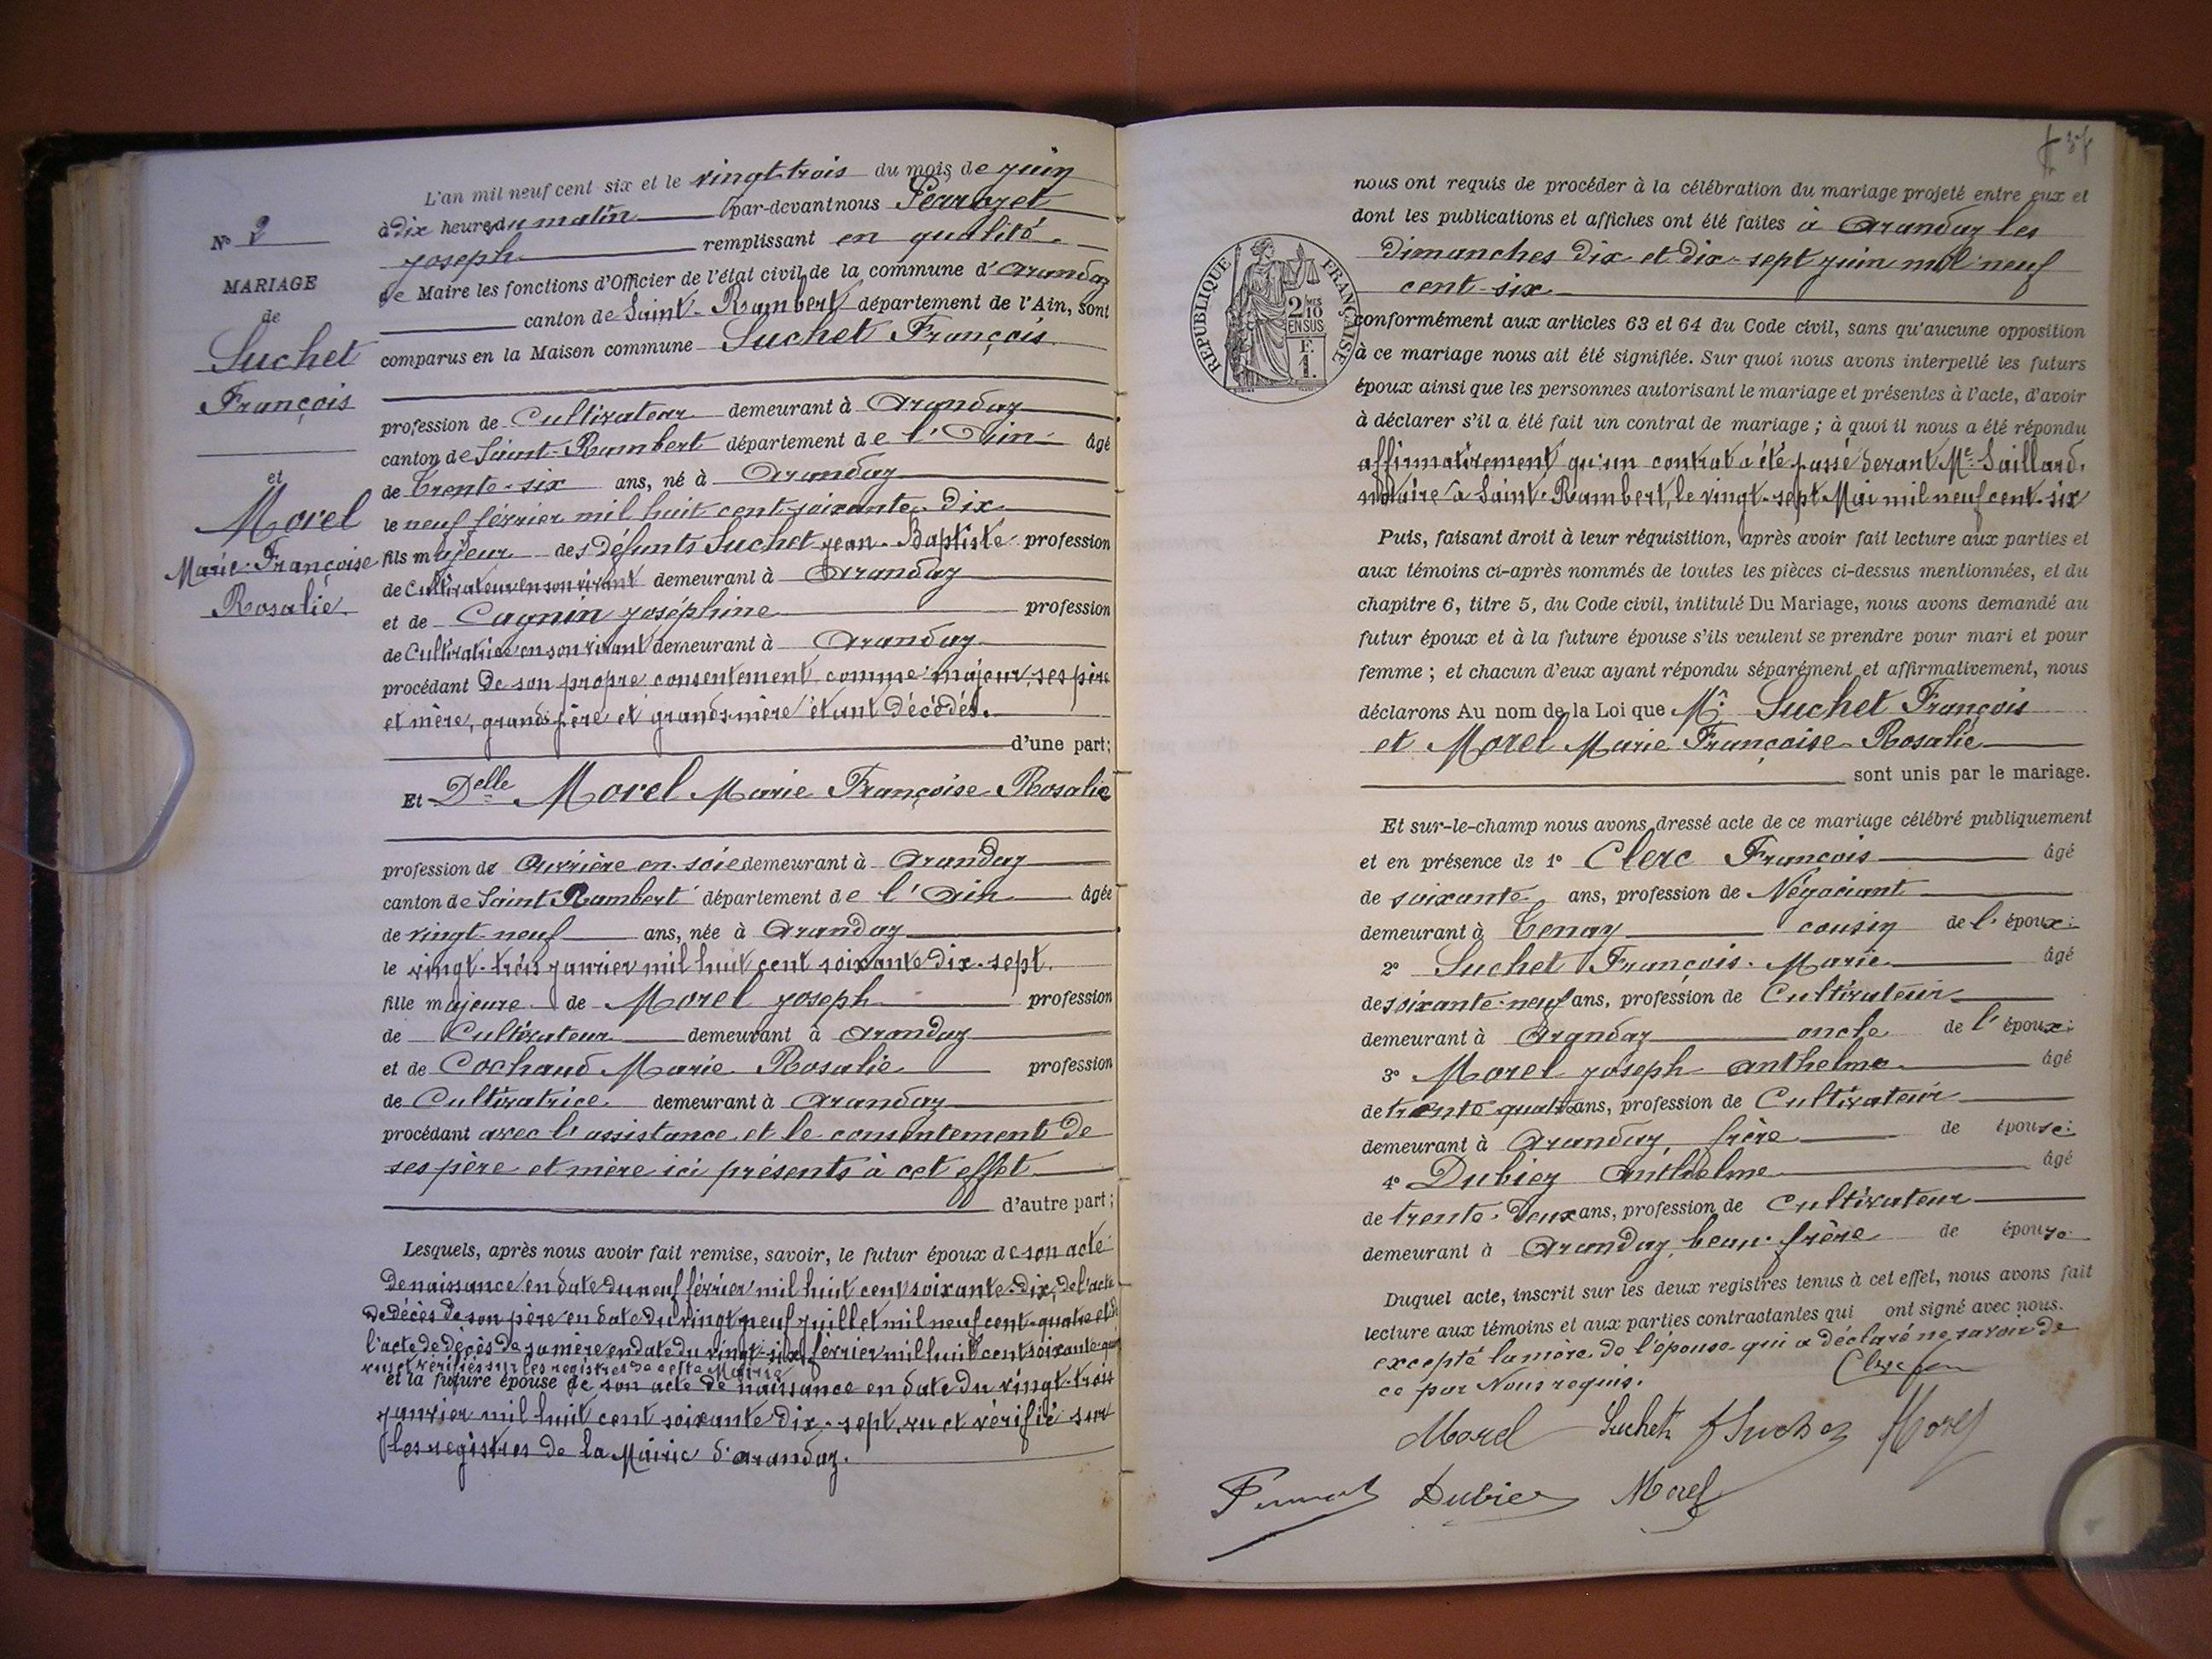 L'an mil neuf cent six et le vingt-trois du mois de juin
à dix heures du matin par-devant nous
Joseph remplissant en qualité
de Maire les fonctions d'Officier de l'état civil de la commune d'Arandaz
canton de Saint-Rambert département de l'Ain, sont
comparus en la Maison commune Suchet François
profession de Cultivateur demeurant à Arandaz
canton de Saint-Rambert département de l'Ain âgé
de trente-six ans, né à Arandaz
le neuf février mil huit cent soixante-dix
fils majeur des défunts Suchet Jean-Baptiste profession
de Cultivateur en son vivant demeurant à Arandaz
et de Cagnin Joséphine profession
de Cultivatrice en son vivant demeurant à Arandaz
procédant de son propre consentement comme majeur, ses père
et mère, grands-père et grands-mère étant décédés.
d'une part;
Et Delle Morel Marie Françoise Rosalie
profession de Ouvrière en soie demeurant à Arandaz
canton de Saint Rambert département de l'Ain âgée
de vingt-neuf ans, née à Arandaz
le vingt-trois janvier mil huit cent soixante dix-sept.
fille majeure de Morel Joseph profession
de Cultivateur demeurant à Arandaz
et de Cochaud Marie Rosalie profession
de Cultivatrice demeurant à Arandaz
procédant avec l'assistance et le consentement de
ses père et mère ici présents à cet effet
d'autre part;
Lesquels, après nous avoir fait remise, savoir, le futur époux de son acte
de naissance en date du neuf février mil huit cent soixante-dix, de l'acte
de décès de son père en date du vingt neuf juillet mil neuf cent-quatre et de
l'acte de décès de sa mère en date du vingt-six février mil huit cent soixante
vus et vérifiés sur les registres de cette Mairie
et la future épouse de son acte de naissance en date du vingt-trois
janvier mil huit cent soixante dix-sept, vu et vérifié sur
les registres de la Mairie d'Arandaz.
N° 2
MARIAGE
de
Suchet
François
et
Morel
Marie-Françoise
Rosalie
nous ont requis de procéder à la célébration du mariage projeté entre eux et
dont les publications et affiches ont été faites à Arandaz les
dimanches dix et dix-sept juin mil neuf
cent-six
conformément aux articles 63 et 64 du Code civil, sans qu'aucune opposition
à ce mariage nous ait été signifiée. Sur quoi nous avons interpellé les futurs
époux ainsi que les personnes autorisant le mariage et présentes à l'acte, d'avoir
à déclarer s'il a été fait un contrat de mariage ; à quoi il nous a été répondu
affirmativement qu'un contrat a été passé devant Me Saillard,
notaire à Saint-Rambert, le vingt-sept Mai mil neuf cent-six
Puis, faisant droit à leur réquisition, après avoir fait lecture aux parties et
aux témoins ci-après nommés de toutes les pièces ci-dessus mentionnées, et du
chapitre 6, titre 5, du Code civil, intitulé Du Mariage, nous avons demandé au
futur époux et à la future épouse s'ils veulent se prendre pour mari et pour
femme ; et chacun d'eux ayant répondu séparément et affirmativement, nous
déclarons Au nom de la Loi que Mr Suchet François
et Morel Marie Françoise Rosalie
sont unis par le mariage.
Et sur-le-champ nous avons dressé acte de ce mariage célébré publiquement
et en présence de 1° Clerc François âgé
de soixante ans, profession de Négociant
demeurant à Tenay cousin de l'époux;
2° Suchet François-Marie âgé
de soixante-neuf ans, profession de Cultivateur
demeurant à Arandaz oncle de l'époux;
3° Morel Joseph Anthelme âgé
de trente quatre ans, profession de Cultivateur
demeurant à Arandaz, frère de épouse;
4° Dubiez Anthelme âgé
de trente-deux ans, profession de Cultivateur
demeurant à Arandaz beau-frère de épouse
Duquel acte, inscrit sur les deux registres tenus à cet effet, nous avons fait
lecture aux témoins et aux parties contractantes qui ont signé avec nous.
excepté la mère de l'épouse qui a déclaré ne savoir de
ce par Nous requis.
Clerc
Morel Suchet f Suchet Morel
Dubiez Morel
RÉPUBLIQUE FRANÇAISE
2/10 MES
EN SUS
F.
1.